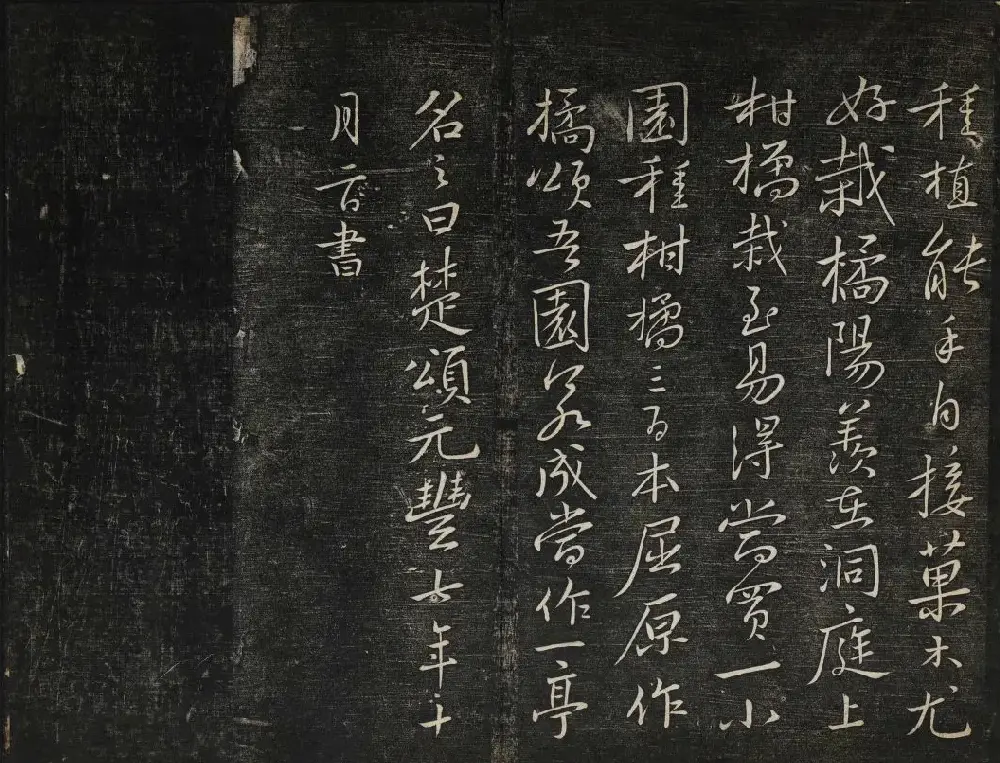 種植能手自接菓木尤
好栽橘陽羨在洞庭上
柑橘栽至易得當買一小
園種柑橘三百本屈原作
橘頌吾園若成當作一亭
名之曰楚頌元豐七年十
月二日書